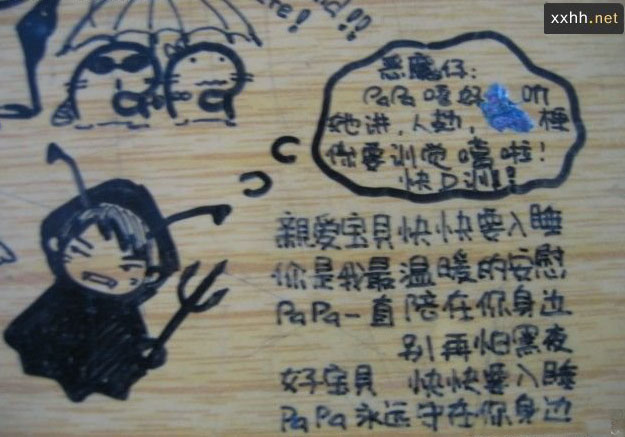 xxhh.net
恶魔仔:
PaPa唔好 听
她讲,人地, 梗
你要训觉嘻啦!
快D训!!
亲爱宝贝快快要入睡
你是我最温暖的安慰
PaPa一直陪在你身边
别再怕黑夜
好宝贝 快快要入睡
PaPa永远守在你身边